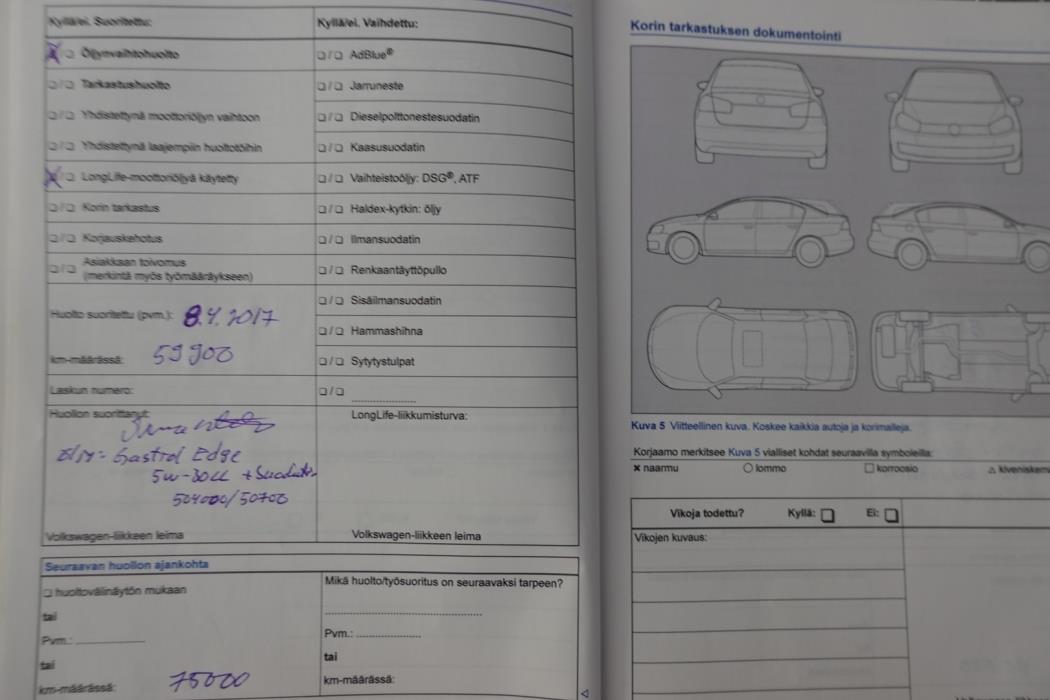 Kyllä/ei. Suoritettu:
❏ Öljynvaihtohuolto
❏/❏ Tarkastushuolto
❏/❏ Yhdistettynä moottoriöljyn vaihtoon
❏/❏ Yhdistettynä laajempiin huoltotöihin
❏ LongLife-moottoriöljyä käytetty
❏/❏ Korin tarkastus
❏/❏ Korjauskehotus
❏/❏ Asiakkaan toivomus
(merkintä myös työmääräykseen)
Huolto suoritettu (pvm.): 8.4.2017
km-määrässä: 59900
Laskun numero:
Huollon suorittanut:
Edge
504000/50700
Volkswagen-liikkeen leima
Kyllä/ei. Vaihdettu:
❏/❏ AdBlue®
❏/❏ Jarruneste
❏/❏ Dieselpolttonestesuodatin
❏/❏ Kaasusuodatin
❏/❏ Vaihteistoöljy: DSG®, ATF
❏/❏ Haldex-kytkin: öljy
❏/❏ Ilmansuodatin
❏/❏ Renkaantäyttöpullo
❏/❏ Sisäilmansuodatin
❏/❏ Hammashihna
❏/❏ Sytytystulpat
❏/❏ ....................
LongLife-liikkumisturva:
Volkswagen-liikkeen leima
Seuraavan huollon ajankohta
❏ huoltovälinäytön mukaan
tai
Pvm.: ....................
tai
km-määrässä: 75000
Mikä huolto/työsuoritus on seuraavaksi tarpeen?
Pvm.: ....................
tai
km-määrässä:
Korin tarkastuksen dokumentointi
Kuva 5 Viitteellinen kuva. Koskee kaikkia autoja ja korimalleja.
Korjaamo merkitsee Kuva 5 vialliset kohdat seuraavilla symboleilla:
× naarmu ○ lommo □ korroosio
Vikoja todettu? Kyllä: ❏ Ei: ❏
Vikojen kuvaus: